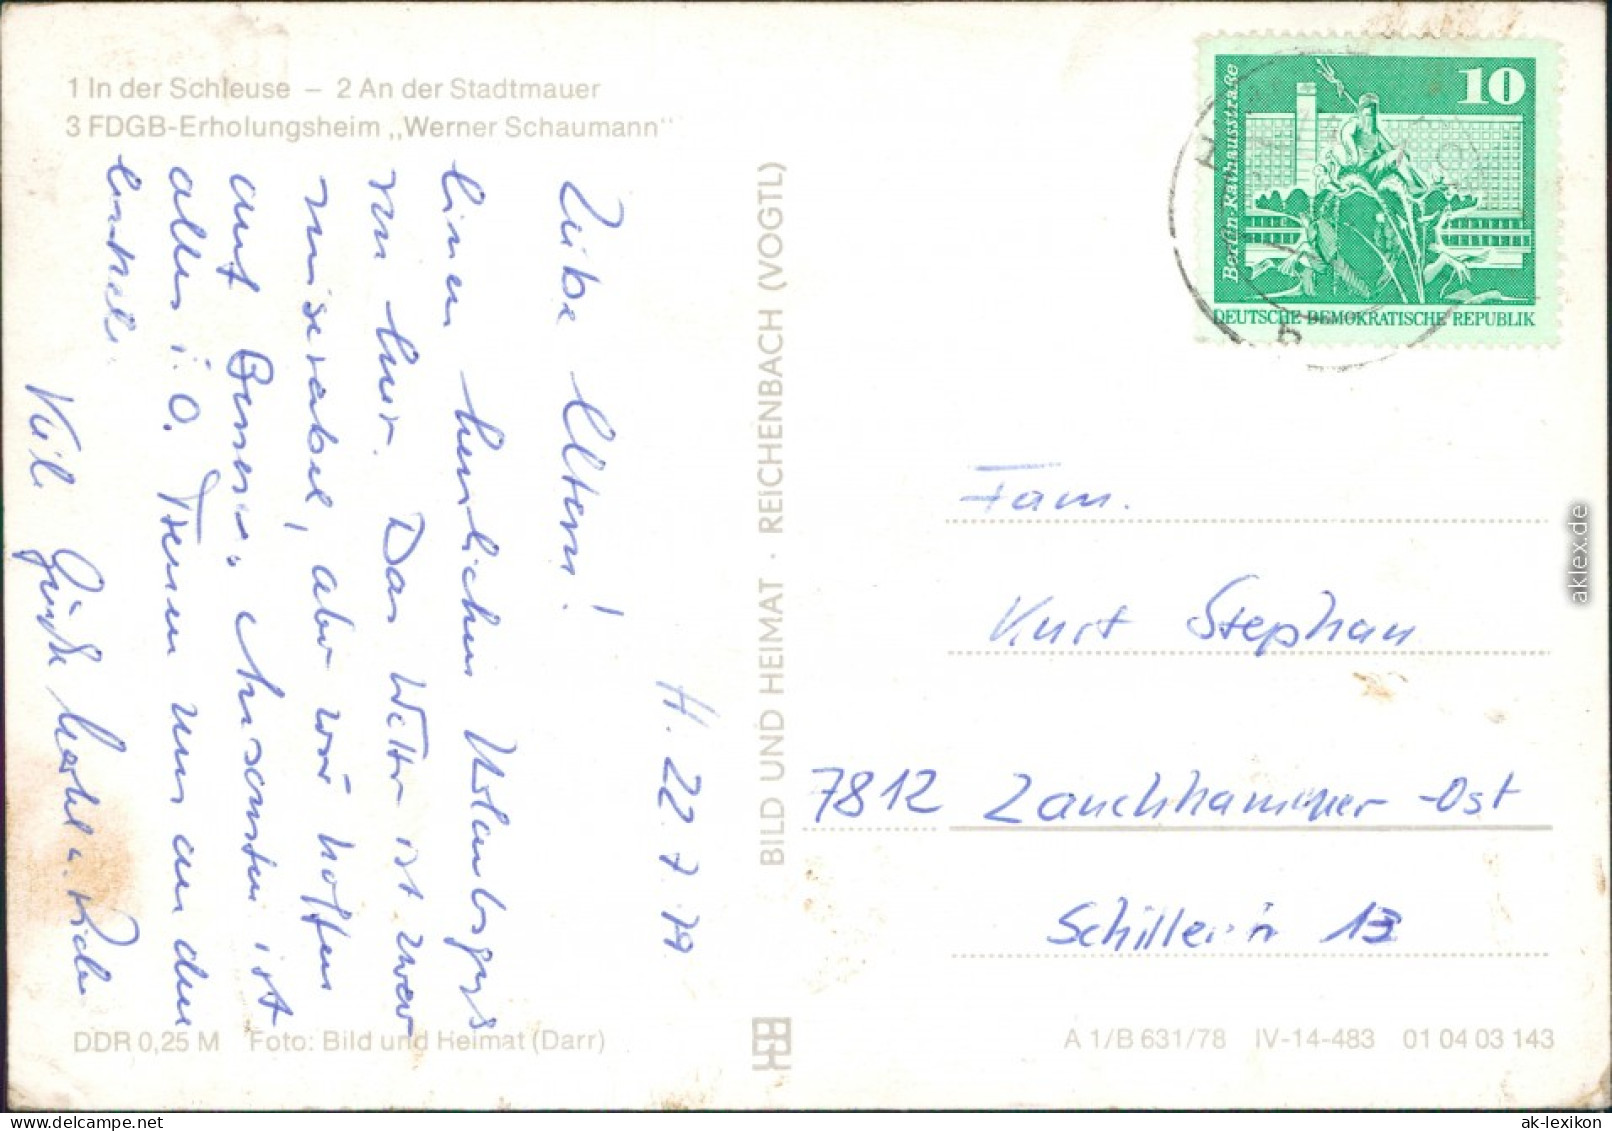 1 In der Schleuse – 2 An der Stadtmauer
3 FDGB-Erholungsheim „Werner Schaumann"
H. 22.7.79
Liebe Eltern!
Einen herzlichen Urlaubsgruß
von hier. Das Wetter ist zwar
miserabel, aber wir hoffen
auf Besser. Ansonsten ist
alles i. O. Freuen uns an den
Viele Grüße
BILD UND HEIMAT · REICHENBACH (VOGTL)
10
Berlin-Rathausstraße
DEUTSCHE DEMOKRATISCHE REPUBLIK
Fam.
Kurt Stephan
7812 Lauchhammer-Ost
13
DDR 0,25 M Foto: Bild und Heimat (Darr)
A 1/B 631/78 IV-14-483 01 04 03 143
aklex.de
delcampe.net
ak-lexikon